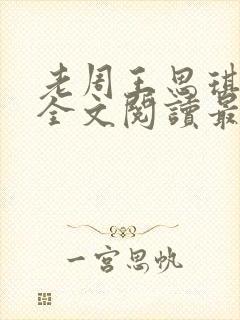 老周王思琪
全文阅读最
一宫思帆